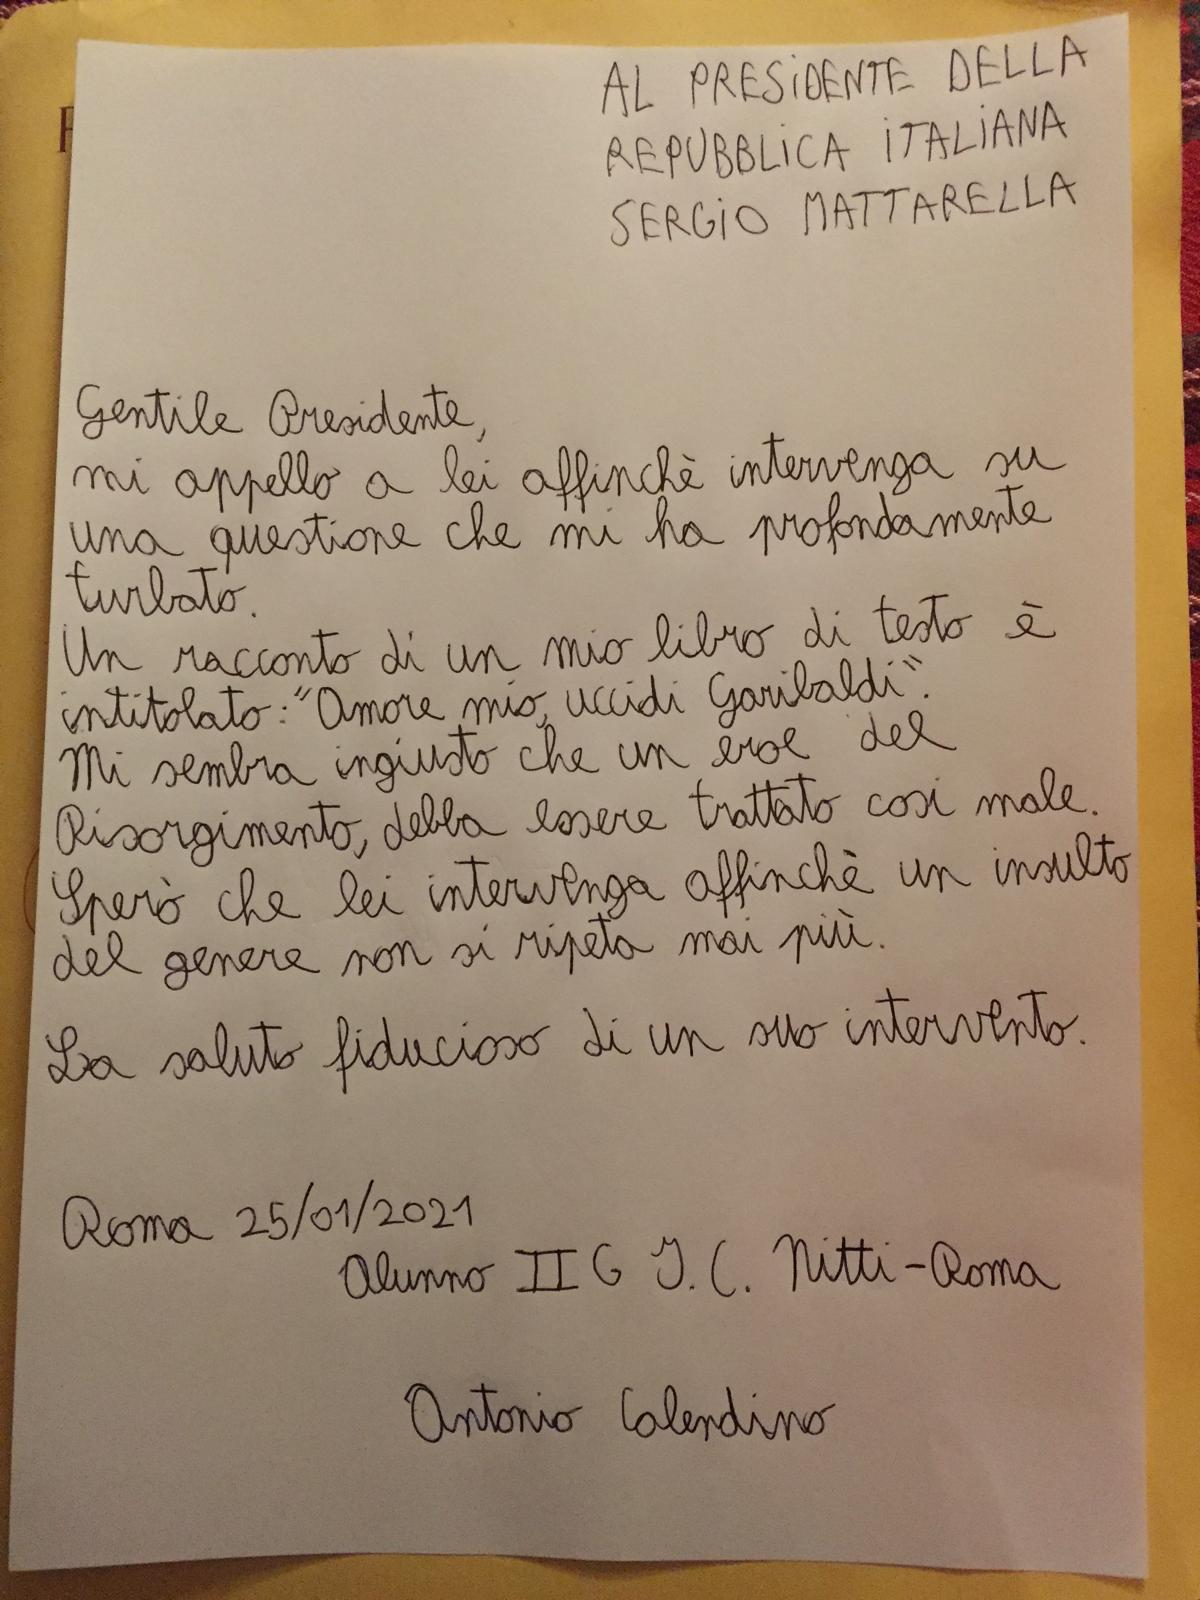 AL PRESIDENTE DELLA
REPUBBLICA ITALIANA
SERGIO MATTARELLA
Gentile Presidente,
mi appello a lei affinchè intervenga su
una questione che mi ha profondamente
turbato.
Un racconto di un mio libro di testo è
intitolato: "Amore mio, uccidi Garibaldi".
Mi sembra ingiusto che un eroe del
Risorgimento, debba essere trattato così male.
Sperò che lei intervenga affinchè un insulto
del genere non si ripeta mai più.
La saluto fiducioso di un suo intervento.
Roma 25/01/2021
Alunno II G I.C. Nitti-Roma
Antonio Calendino